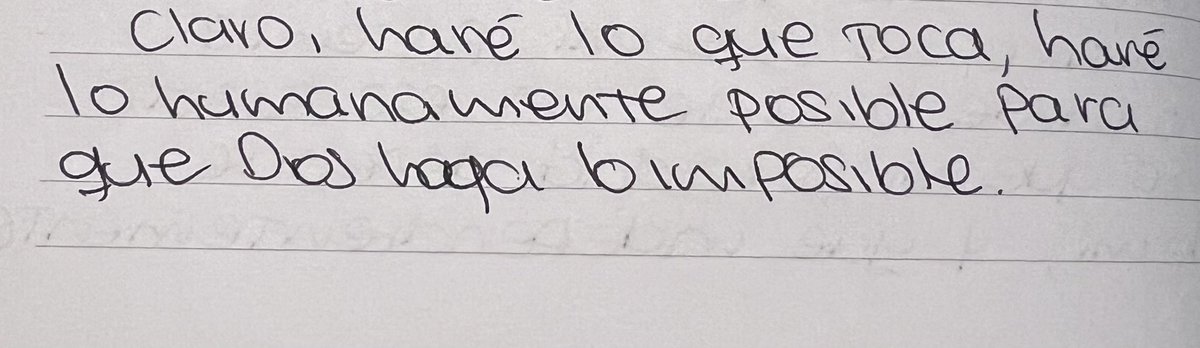 Claro, haré lo que TOCA, haré
lo humanamente posible para
que Dios haga lo imposible.